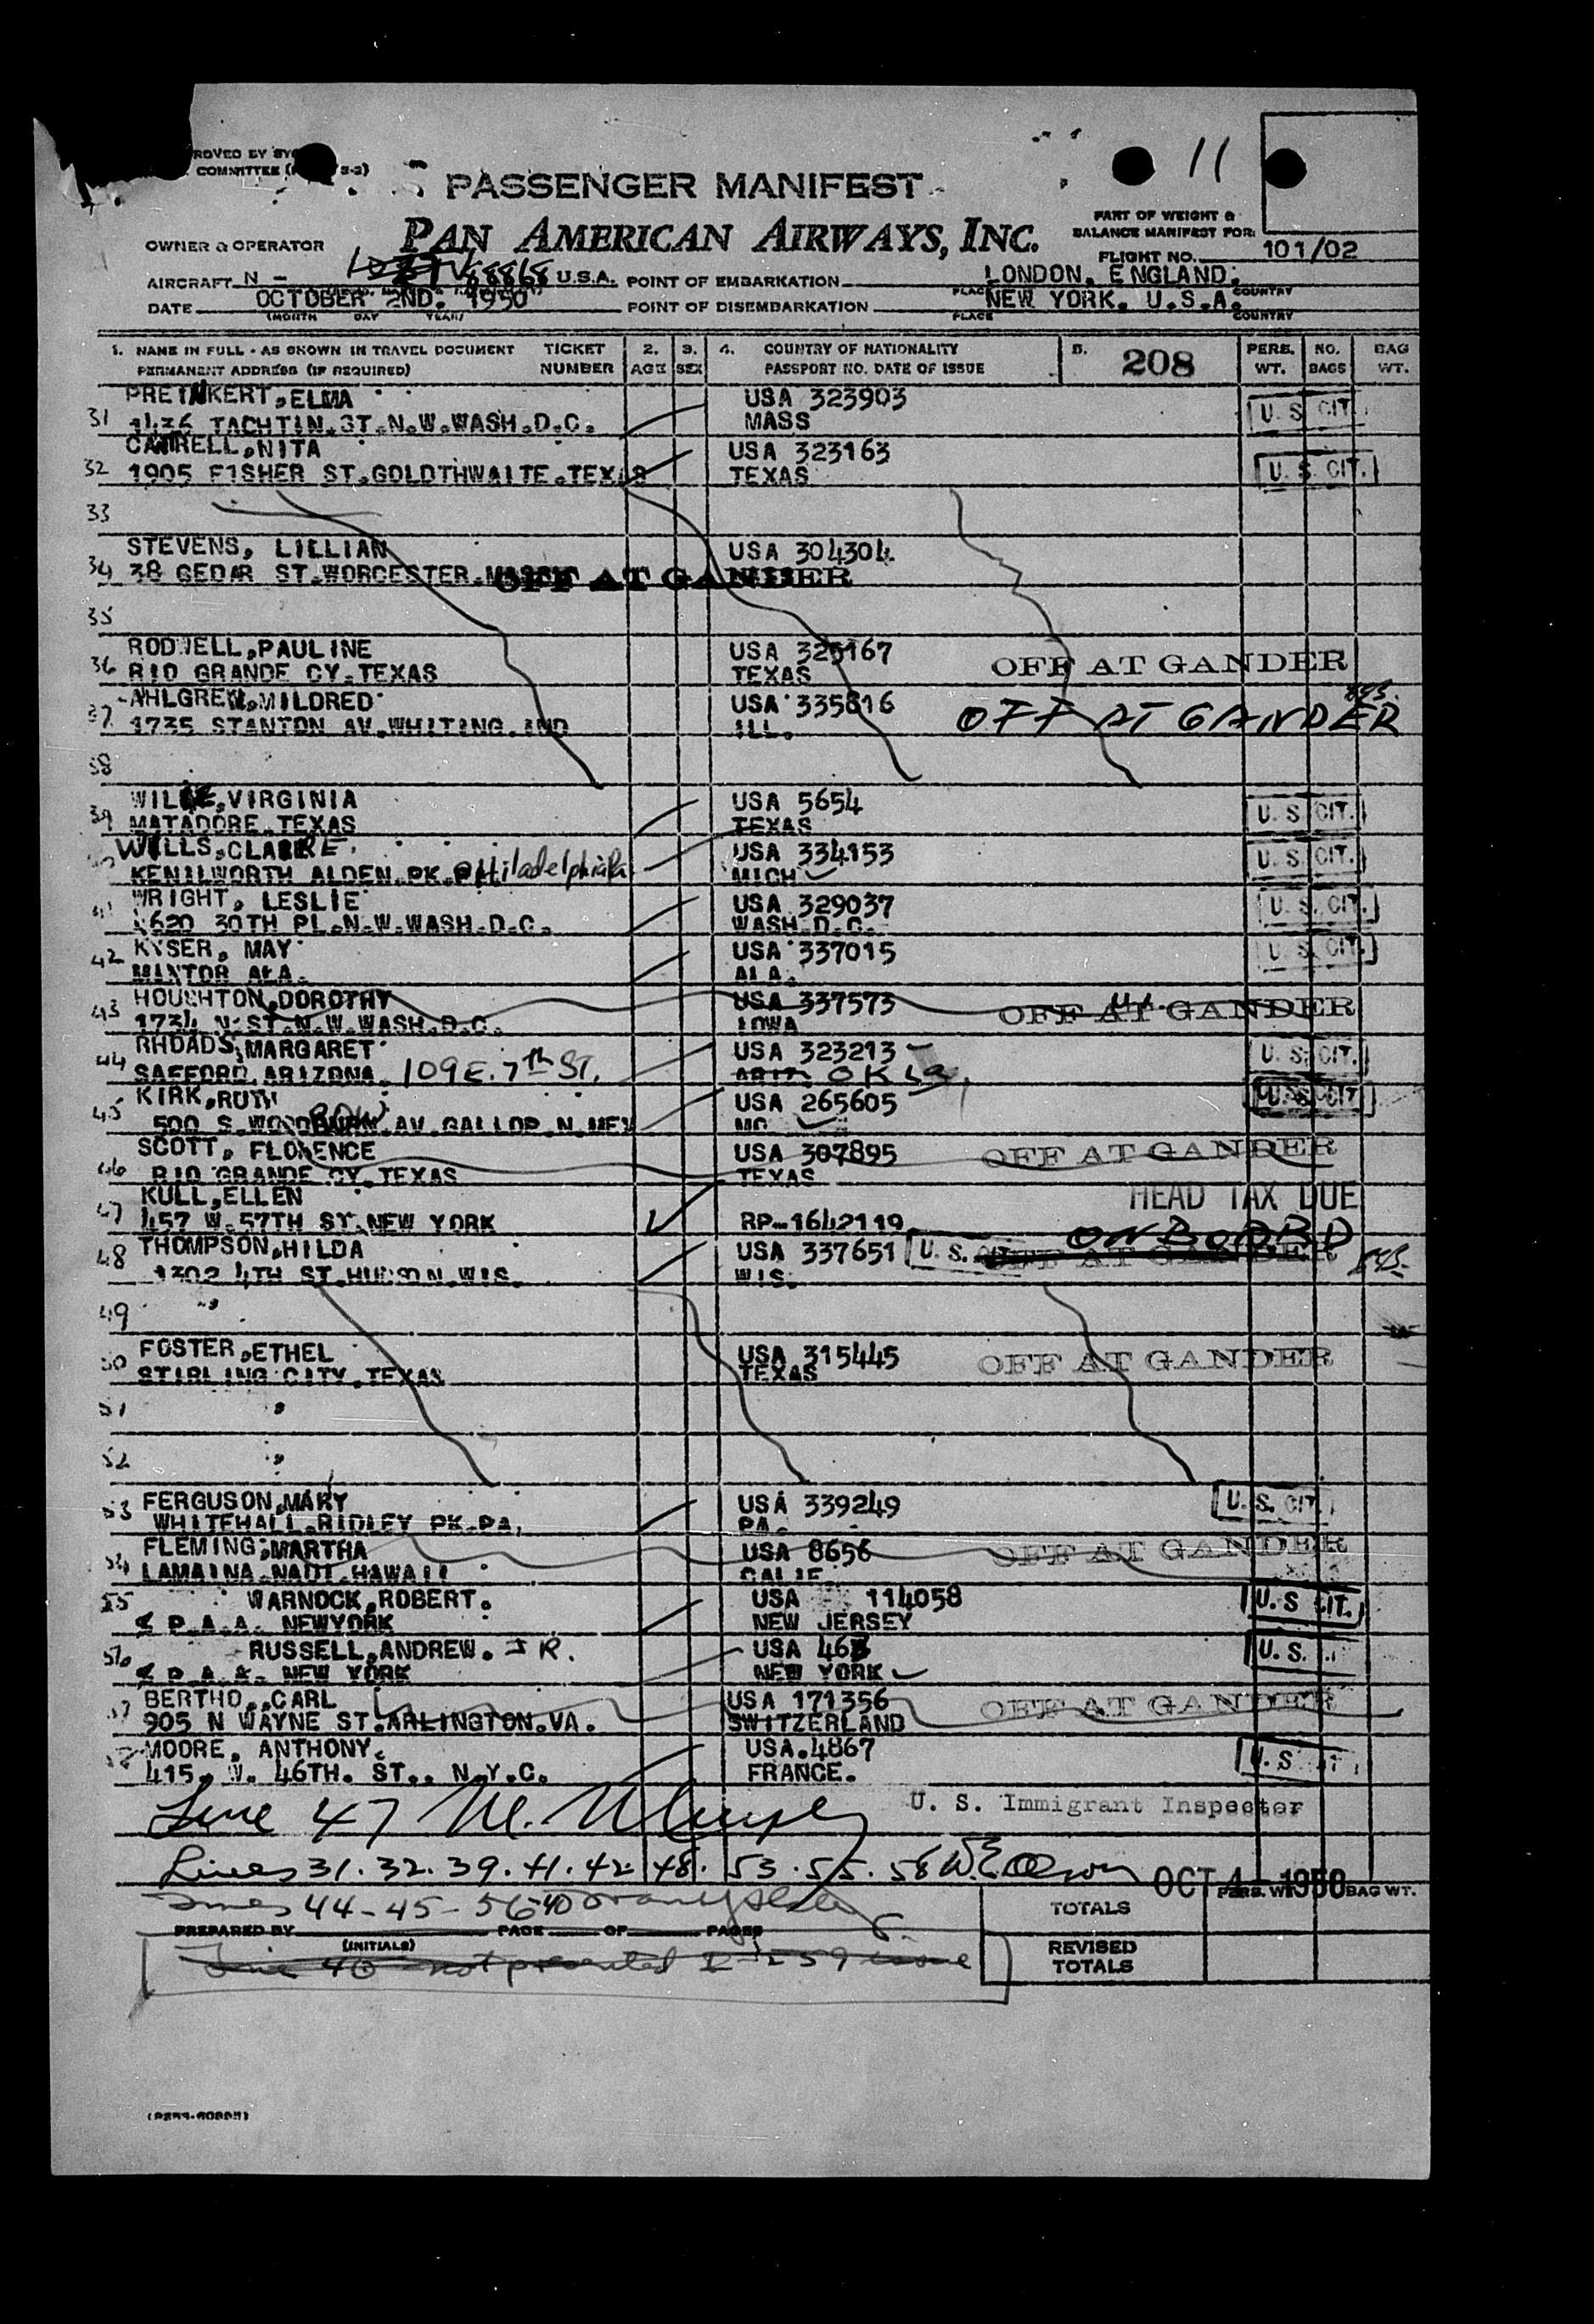 11
COMMITTEE
PASSENGER MANIFEST
PAN AMERICAN AIRWAYS, INC.
PART OF WEIGHT &
BALANCE MANIFEST FOR:
OWNER & OPERATOR
FLIGHT NO. 101/02
AIRCRAFT N - 88868 U.S.A. POINT OF EMBARKATION LONDON, ENGLAND.
PLACE COUNTRY
DATE OCTOBER 2ND. 1950 POINT OF DISEMBARKATION NEW YORK. U.S.A.
(MONTH DAY YEAR) PLACE COUNTRY
1. NAME IN FULL - AS SHOWN IN TRAVEL DOCUMENT TICKET 2. 3. 4. COUNTRY OF NATIONALITY 5. 208 PERS. NO. BAG
PERMANENT ADDRESS (IF REQUIRED) NUMBER AGE SEX PASSPORT NO. DATE OF ISSUE WT. BAGS WT.
PRETNKERT, ELMA USA 323903 U. S CIT.
31 ST.N.W.WASH.D.C. MASS
CANTRELL,NITA USA 323163
32 1905 FISHER ST.GOLDTHWAITE.TEXAS TEXAS U. S. CIT.
33
STEVENS, LILLIAN USA 304304
34 38 CEDAR ST.WORCESTER. OFF AT GANDER
35
RODWELL,PAULINE USA 325167
36 RIO GRANDE CY.TEXAS TEXAS OFF AT GANDER
AHLGREN,MILDRED USA 335816
37 1735 STANTON AV.WHITING.IND ILL. OFF AT GANDER
38
VIRGINIA USA 5654
39 MATADORE.TEXAS TEXAS U. S CIT.
WILLS,CLAIRE. USA 334153
KENILWORTH ALDEN.PK.Philadelphia Pa MICH U. S. CIT.
WRIGHT, LESLIE USA 329037
41 30TH PL.N.W.WASH.D.C. WASH.D.C. U. S. CIT.
KYSER, MAY USA 337015
42 MINTOR ALA. ALA. U. S. CIT.
HOUGHTON,DOROTHY USA 337573
43 1734 N.ST.N.W.WASH.D.C. IOWA OFF AT GANDER
RHOADS,MARGARET USA 323213
44 SAFFORD.ARIZONA. 109 E. 7th ST. ARIZ OKLA U. S. CIT.
KIRK,RUTH USA 265605
45 500 S. AV.GALLOP.N.MEX MO U. S. CIT
SCOTT, FLORENCE USA 307895
46 RIO GRANDE CY.TEXAS TEXAS OFF AT GANDER
KULL,ELLEN HEAD TAX DUE
47 457 W.57TH ST.NEW YORK RP-1642119
ON BOARD
THOMPSON,HILDA USA 337651 U. S. OFF AT GANDER
48 1302 4TH ST.HUDSON.WIS. WIS.
49 "
FOSTER,ETHEL USA 315445
50 STIRLING CITY.TEXAS TEXAS OFF AT GANDER
51 "
52 "
FERGUSON,MARY USA 339249
53 WHITEHALL.RIDLEY PK.PA. PA. U. S. CIT.
FLEMING,MARTHA USA 8656
54 LAMAINA HAWAII CALIF OFF AT GANDER
55 WARNOCK,ROBERT. USA 114058
P.A.A. NEWYORK NEW JERSEY U. S CIT.
RUSSELL,ANDREW. JR. USA
56 P.A.A. NEW YORK NEW YORK U. S.
BERTHO.,CARL USA 171356
57 905 N WAYNE ST.ARLINGTON.VA. SWITZERLAND OFF AT GANDER
MOORE, ANTHONY. USA.4867
415. W. 46TH. ST.. N.Y.C. FRANCE. U. S
Line 47 U. S. Immigrant Inspector
Lines 31.32.39.41.42.48.53.55.58 OCT 4 - 1950
44-45-56-40
PREPARED BY PAGE OF PAGES
(INITIALS)
TOTALS PERS. WT. BAG WT.
Line 40 not presented
REVISED
TOTALS